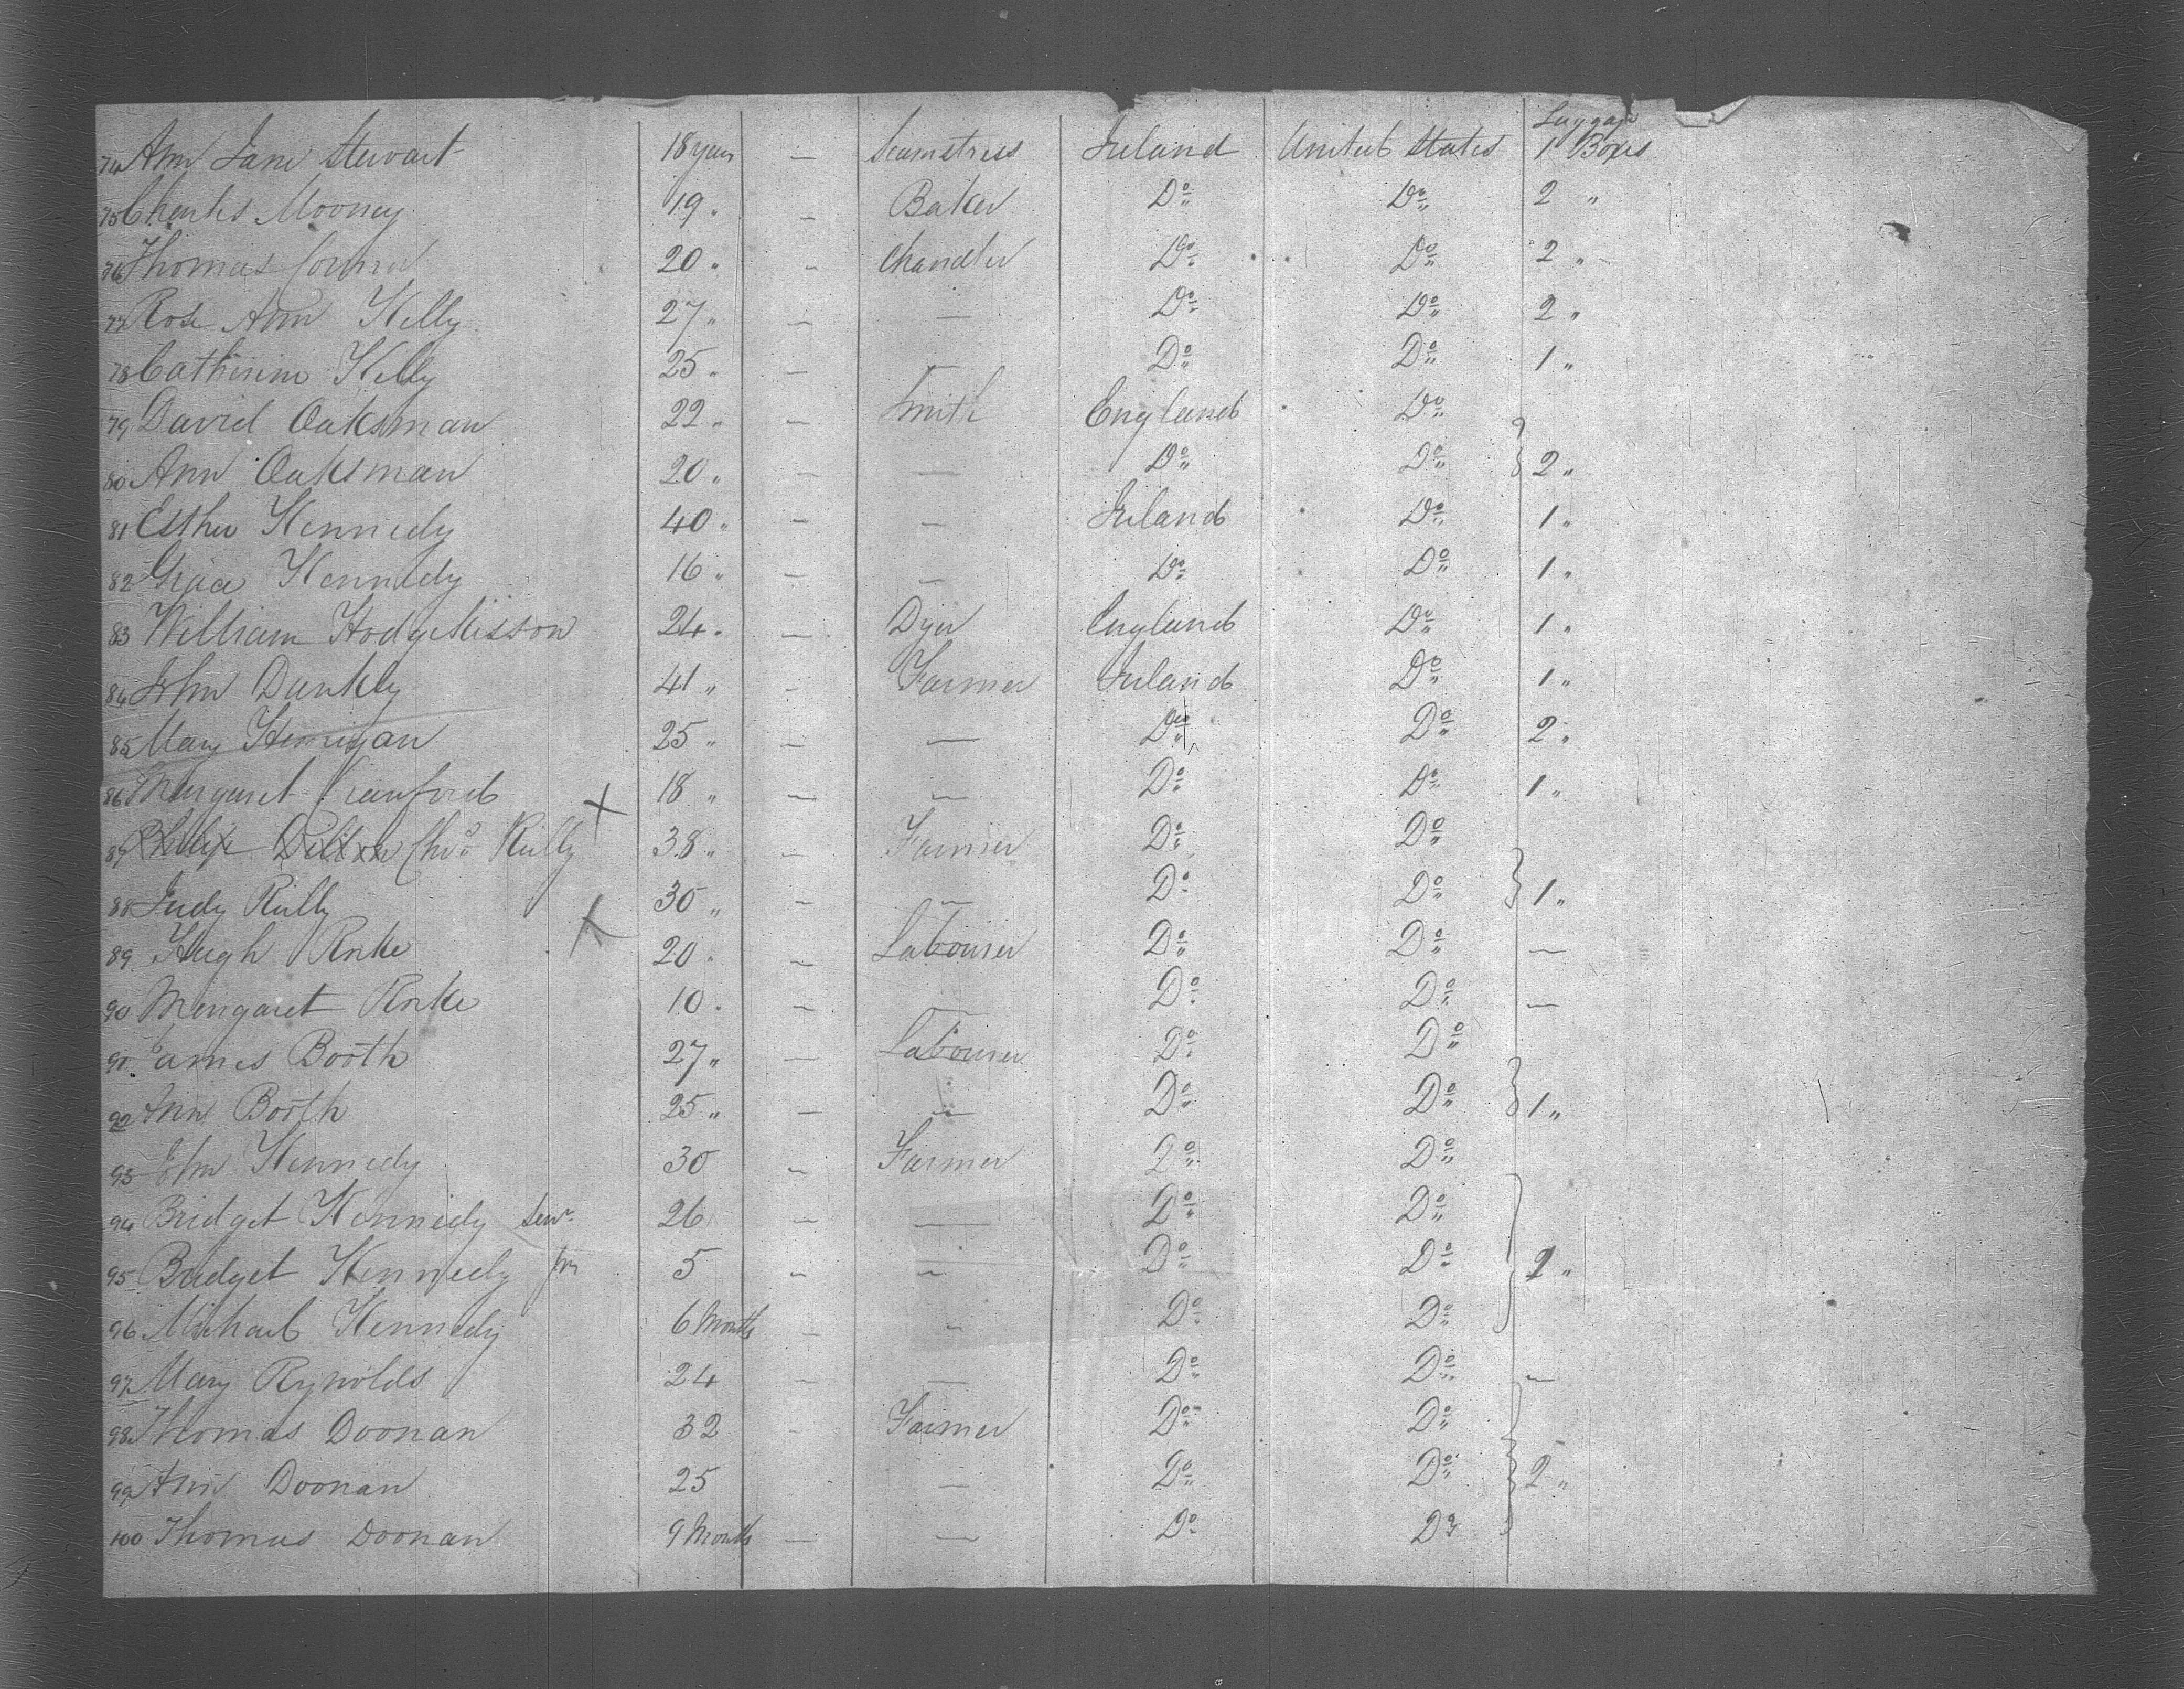 Luggage
74 Ann Jane Stewart 18 years — Seamstress Ireland United States 1 Boxes
75 Charles Mooney 19 " — Baker Do Do 2 "
76 Thomas 20 " — Chandler Do Do 2 "
77 Rose Ann Kelly 27 " — — Do Do 2 "
78 Catherine Kelly 25 " — — Do Do 1 "
79 David Oaksman 22 " — Smith England Do
80 Ann Oaksman 20 " — — Do Do } 2 "
81 Esther Kennedy 40 " — — Ireland Do 1 "
82 Grace Kennedy 16 " — — Do Do 1 "
83 William 24 " — Dyer England Do 1 "
84 John Dunkly 41 " — Farmer Ireland Do 1 "
85 Mary 25 " — — Do Do 2 "
86 Margaret Crawford 18 " — — Do Do 1 "
87 Philip Dillon Chas Reilly X 38 " — Farmer Do Do
88 Judy Reilly 30 " — — Do Do } 1 "
89 Hugh X 20 " — Labourer Do Do —
90 Margaret 10 " — — Do Do —
91 James Booth 27 " — Labourer Do Do
92 Ann Booth 25 " — — Do Do } 1 "
93 John Kennedy 30 — Farmer Do Do
94 Bridget Kennedy Senr 26 — — Do Do
95 Bridget Kennedy Jnr 5 — — Do Do } 2 "
96 Michael Kennedy 6 Months — — Do Do
97 Mary Rynolds 24 — — Do Do —
98 Thomas Doonan 32 — Farmer Do Do
99 Ann Doonan 25 — — Do Do } 2 "
100 Thomas Doonan 9 Months — — Do Do